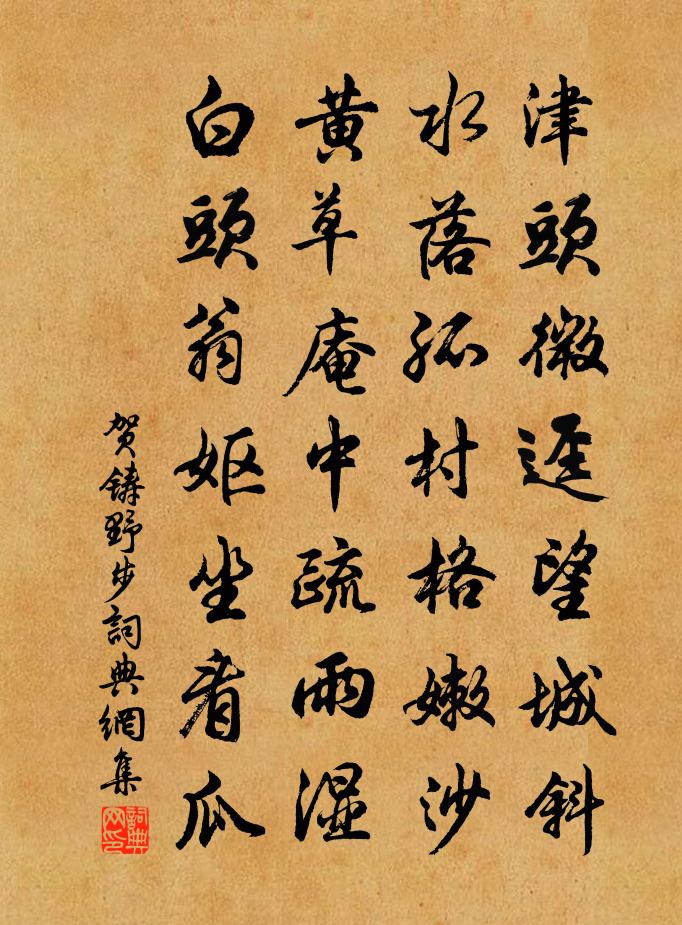 津頭微逕望城斜
水落孤村格嫩沙
黄草庵中疏雨濕
白頭翁嫗坐看瓜
贺鑄野步詞典網集
詞典网印